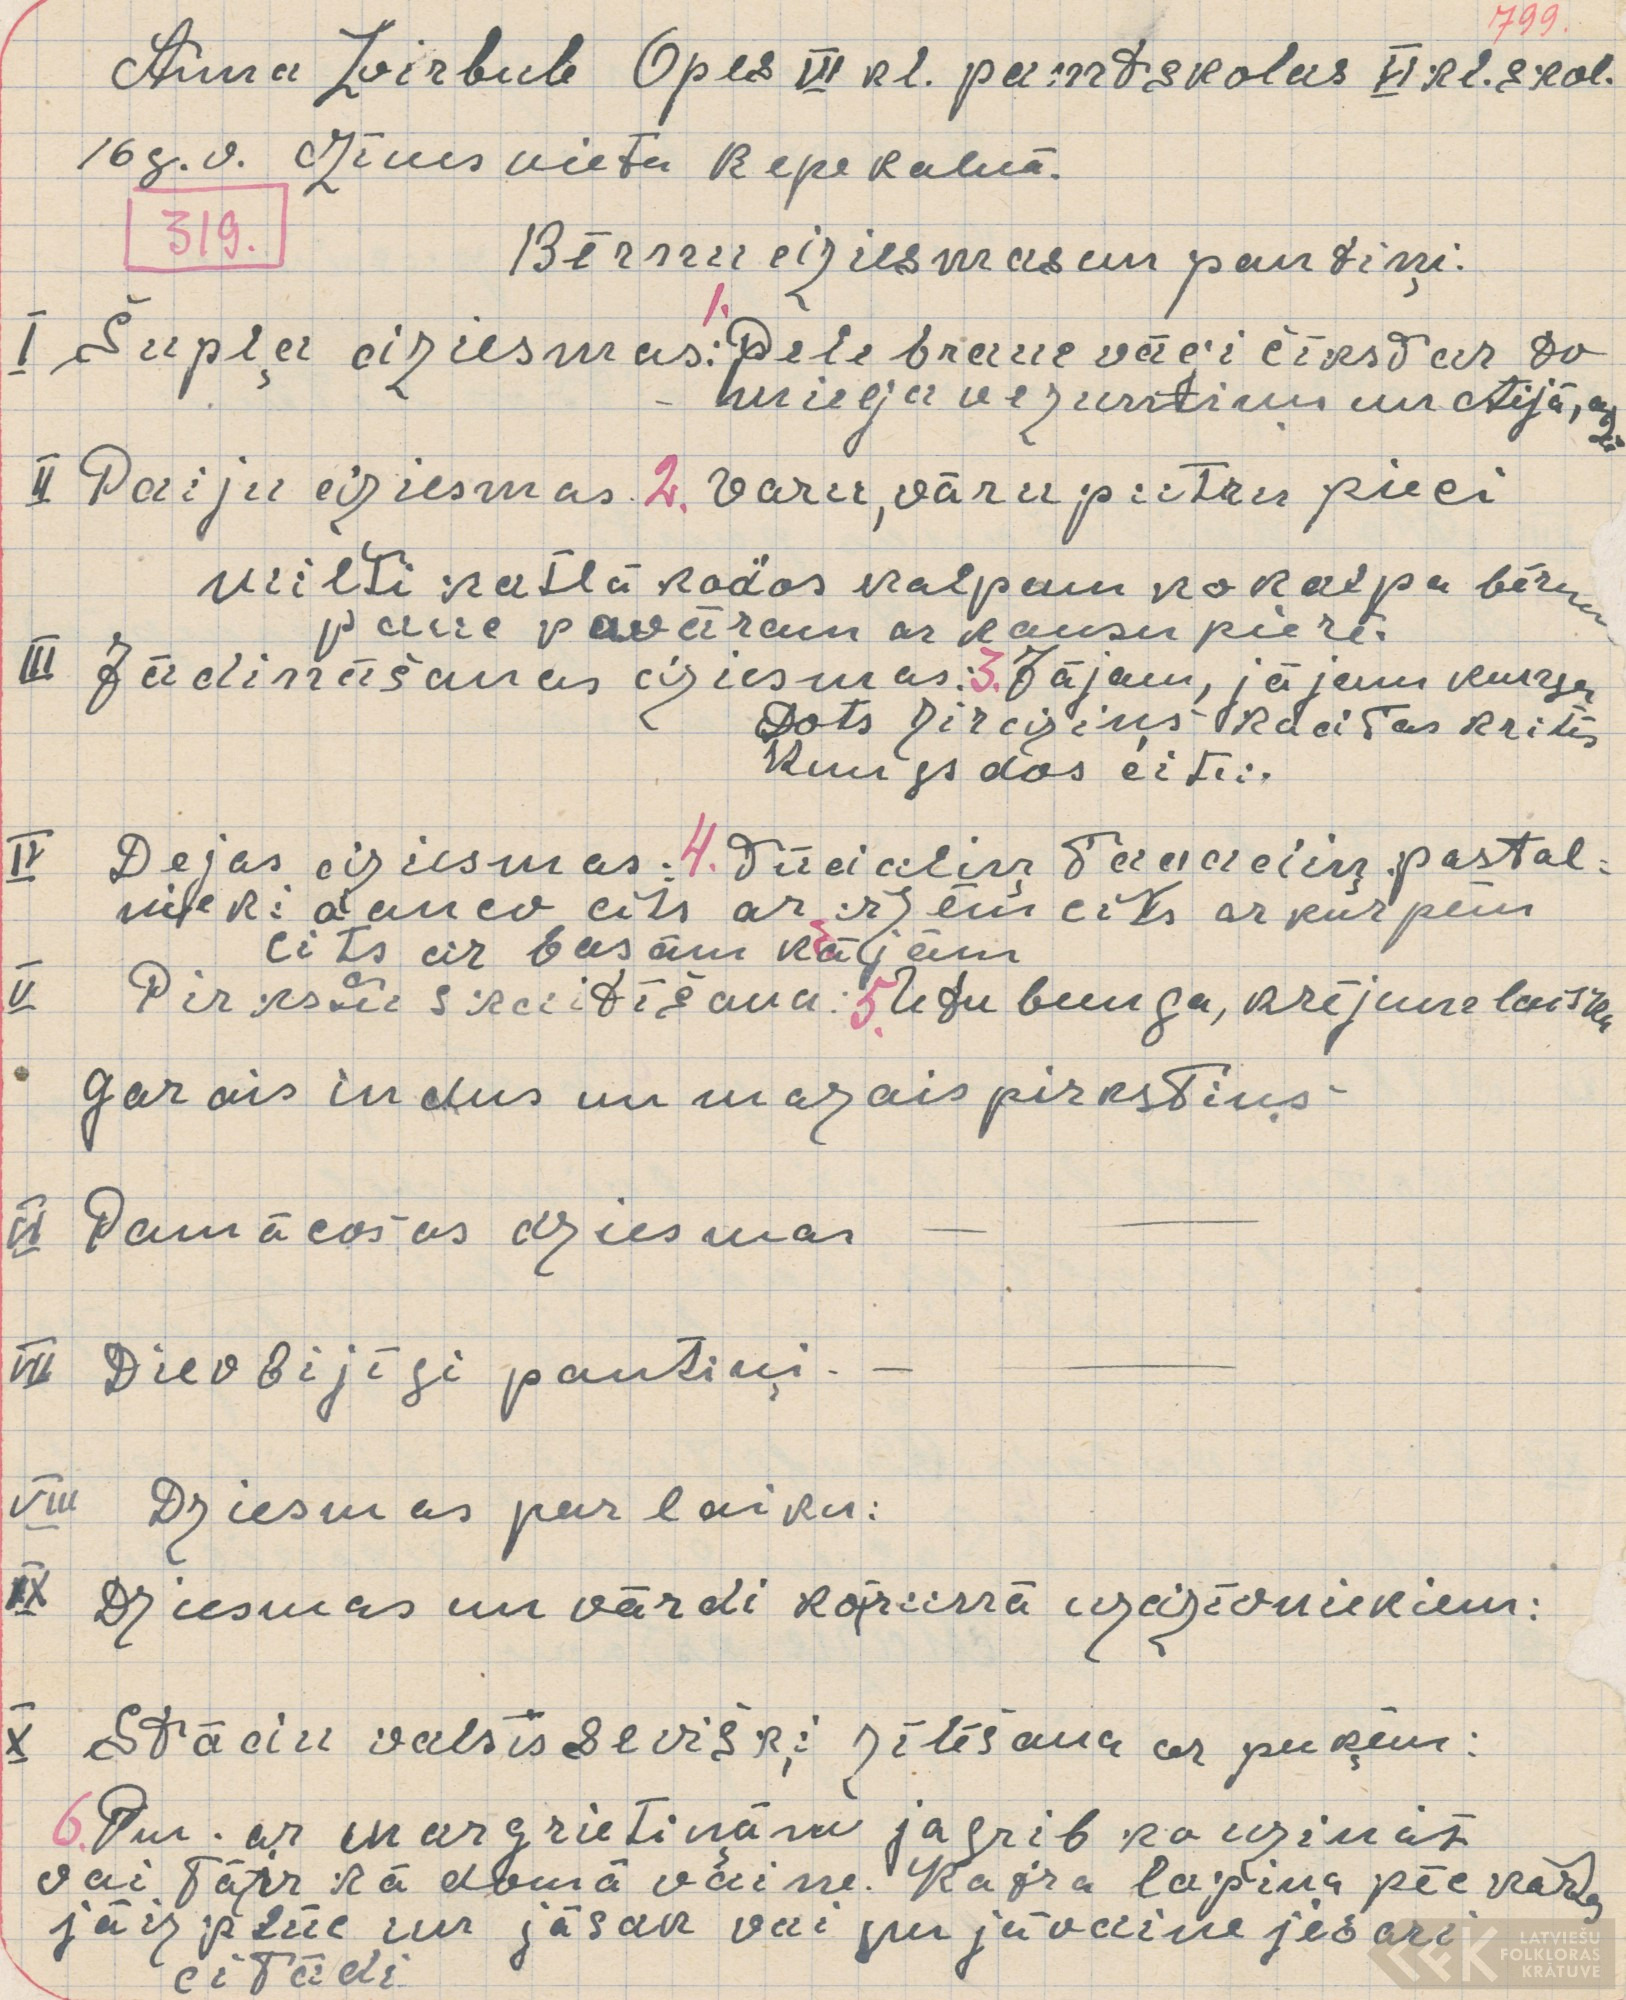 799.
Anna Zvirbule Opes VI kl. pamatskolas VI kl. skol.
16 g. v. dzīves vieta Kepekalnā.
319.
Bērnu dziesmas un pantiņi.
I Šūpļa dziesmas: 1. Pele brauc vāģi čīkst ar to
miega vezumtiņu un Aijā,
II Paiju dziesmas. 2. Varu, vāru putru pieci
milti katlā kodos kalpam ko kalpa bērnu
pane pavāram ar kausu pierē.
III Jādināšanas dziesmas: 3. Jājam, jājam kunga
dots zirdziņš kad tas kritīs
Kungs dos citu.
IV Dejas dziesmas: 4. Tūdaliņ tadadiņ pastal-
nieki danco cits ar zēm cits ar kurpēm
cits ar basām kājām
V Pirkstu skaitīšana: 5. Utu bunga, krējuma laiška
garais indus un mazais pirkstiņš
VI Pamācošas dziesmas —
VII Dievbijīgi pantiņi. —
VIII Dziesmas par laiku:
IX Dziesmas un vārdi kopumā uzdzīvniekiem:
X Stādu valstīs Sevišķi zīlēšana ar puķēm:
6. Pm. ar margrietiņām ja grib ko uzināt
vai tā ir kā domā vai ne. Katra lapiņa pēc kārtas
jāizplūc un jāsak vai nu jā vai ne jeb ari
citādi
LATVIEŠU
FOLKLORAS
KRĀTUVE